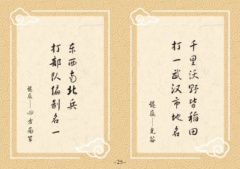 千里沃野皆稻田
打一武汉市地名
谜底——光谷
东西南北兵
打部队编制名一
谜底——四方面军
-25-